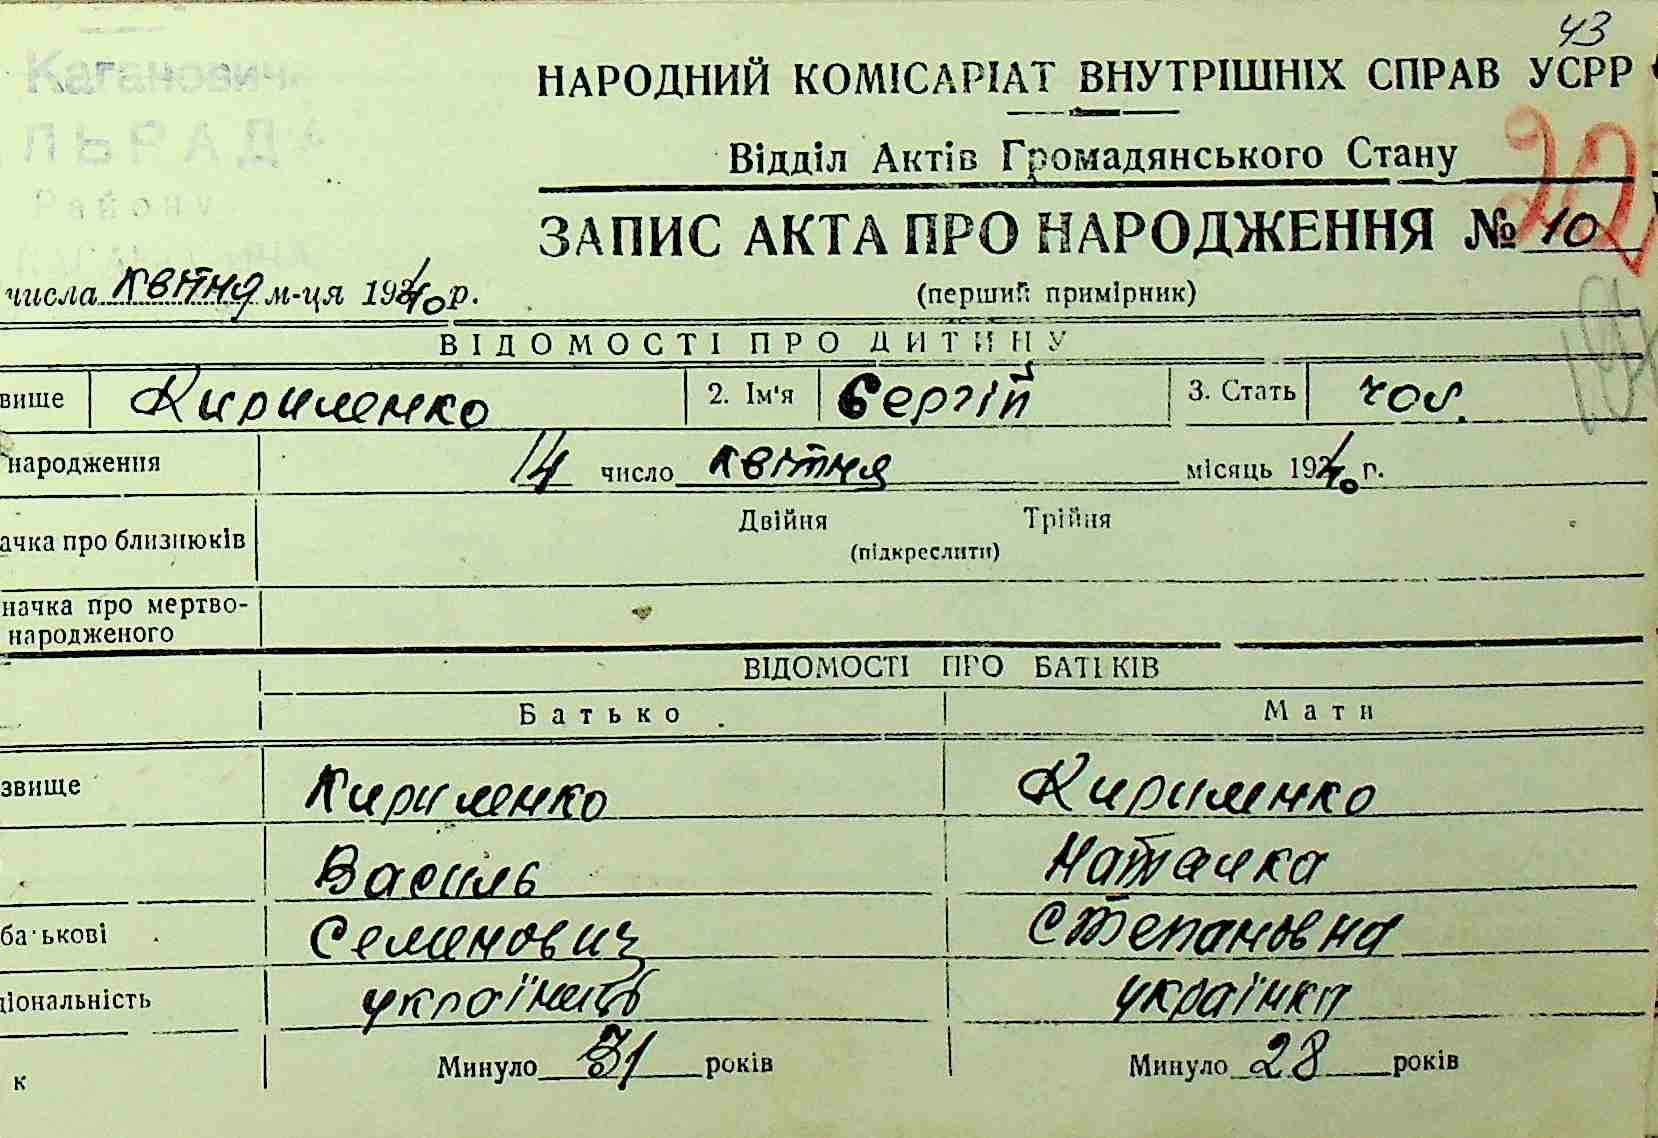 43
Каганович
ЛЬРАДА
Району
НАРОДНИЙ КОМІСАРІАТ ВНУТРІШНІХ СПРАВ УСРР
Відділ Актів Громадянського Стану
22
ЗАПИС АКТА ПРО НАРОДЖЕННЯ № 10
числа квітня м-ця 1940 р.
(перший примірник)
ВІДОМОСТІ ПРО ДИТИНУ
вище Кириленко 2. Ім'я Сергій 3. Стать чол.
народження 14 число квітня місяць 1940 р.
Двійня Трійня
ачка про близнюків
(підкреслити)
начка про мертво-
народженого
ВІДОМОСТІ ПРО БАТЬКІВ
Батько Мати
звище Кириленко Кириленко
Василь Наталка
батькові Семенович Степановна
ціональність українець українка
к Минуло 31 років Минуло 28 років